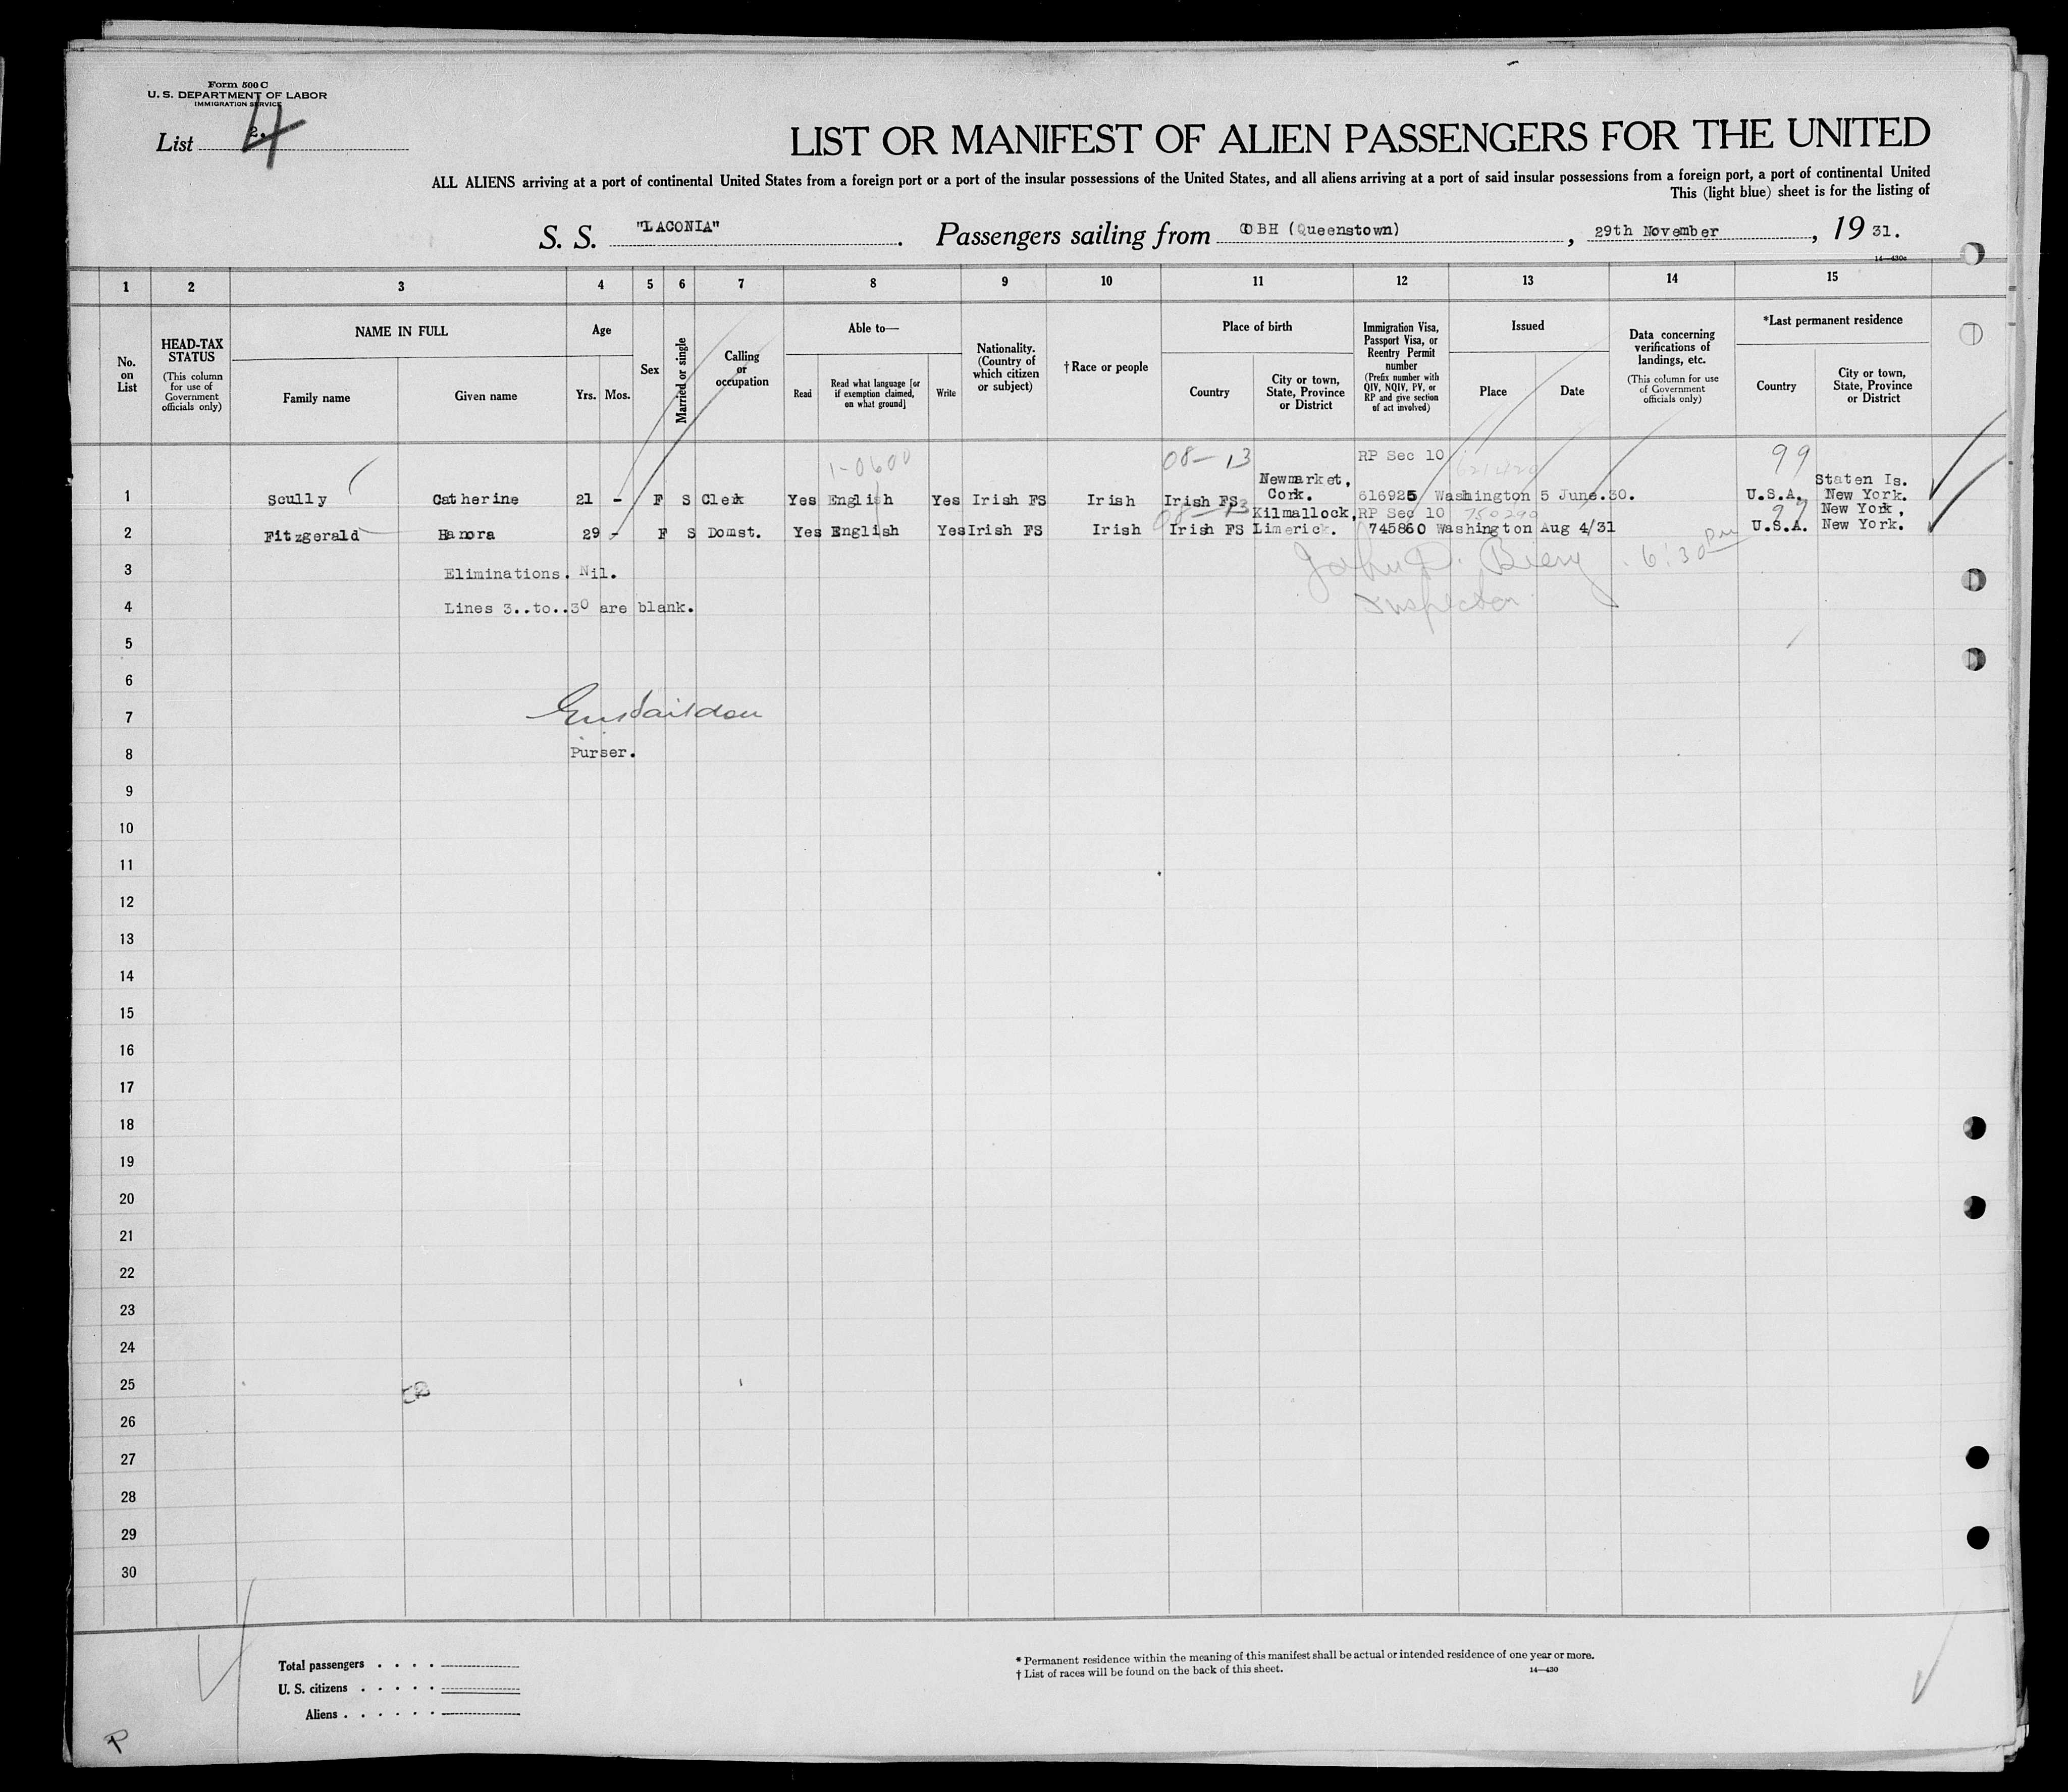 Form 500 C
U. S. DEPARTMENT OF LABOR
IMMIGRATION SERVICE
List 2. 4
LIST OR MANIFEST OF ALIEN PASSENGERS FOR THE UNITED
ALL ALIENS arriving at a port of continental United States from a foreign port or a port of the insular possessions of the United States, and all aliens arriving at a port of said insular possessions from a foreign port, a port of continental United
This (light blue) sheet is for the listing of
S. S. "LACONIA". Passengers sailing from COBH (Queenstown), 29th November, 1931.
14—430c
1 2 3 4 5 6 7 8 9 10 11 12 13 14 15
No. on List
HEAD-TAX STATUS
(This column for use of Government officials only)
NAME IN FULL
Family name
Given name
Age
Yrs.
Mos.
Sex
Married or single
Calling or occupation
Able to—
Read
Read what language [or if exemption claimed, on what ground]
Write
Nationality. (Country of which citizen or subject)
† Race or people
Place of birth
Country
City or town, State, Province or District
Immigration Visa, Passport Visa, or Reentry Permit number
(Prefix number with QIV, NQIV, PV, or RP and give section of act involved)
Issued
Place
Date
Data concerning verifications of landings, etc.
(This column for use of Government officials only)
*Last permanent residence
Country
City or town, State, Province or District
1-0600 08-13 RP Sec 10 99
Newmarket, Staten Is.
1 Scully Catherine 21 - F S Clerk Yes English Yes Irish FS Irish Irish FS Cork. 616925 Washington 5 June.30. U.S.A. New York.
08-13 Kilmallock, RP Sec 10 750290 99 New York,
2 Fitzgerald Hanora 29 - F S Domst. Yes English Yes Irish FS Irish Irish FS Limerick. 745860 Washington Aug 4/31 U.S.A. New York.
3 Eliminations. Nil. John D. 6:30 pm
4 Lines 3..to..30 are blank. Inspector
5
6
7
8 Purser.
9
10
11
12
13
14
15
16
17
18
19
20
21
22
23
24
25
26
27
28
29
30
Total passengers . . . .
U. S. citizens . . . . .
Aliens . . . . . .
* Permanent residence within the meaning of this manifest shall be actual or intended residence of one year or more.
† List of races will be found on the back of this sheet.
14—430
P